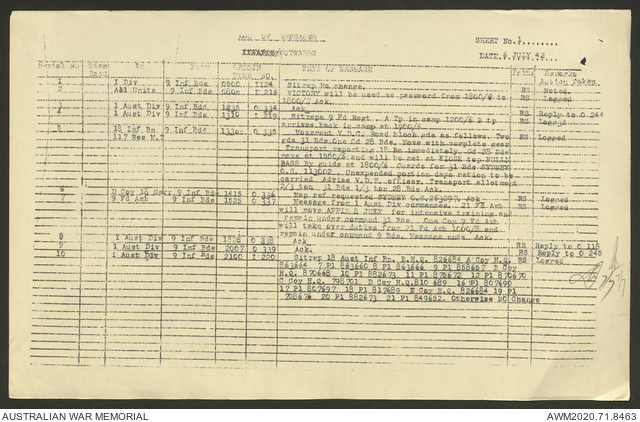 LIST OF MESSAGES
OUTWARDS
SHEET No. 1
DATE. 6 JULY 42
Serial No Time Date To From ORIGIN TIME NO. TEXT OF MESSAGE Remarks Action Taken
1 1 Div 9 Inf Bde 0500 I 124 Sitrep No change. RS Noted
2 All Units 9 Inf Bde 0800 I 216 VICTORY will be used as password from 1800/6 to RS Logged
1800/7 Ack.
1 Aust Div 9 Inf Bde 1235 0 334 Ack RS Reply to 0 244
1 Aust Div 9 Inf Bde 1310 I 219 Sitreps 9 Fd Regt. A Tp in camp 1200/6 B tp RS Logged
arrives back in camp at 1900/6
18 Inf Bn 9 Inf Bde 0 335 Movement V.D.C. Road block gds as follows. Two RS Logged
gds 31 Bde. One Gd 28 Bde. Move with complete gear
Transport reporting 18 Bn immediately. Gd 28 Bde
move at 1500/6 and will be met at KIOSK top BULLI
PASS by guide at 1800/6. Guards for 31 Bde SYDNEY
O.S. 113002. Unexpended portion days ration to be
carried. Advise V.D.C. officer. Transport allotment
2/3 ton 31 Bde 1/3 ton 28 Bde Ack.
6 9 Inf Bde 1415 0 336 Map ref requested SYDNEY O.S. Ack RS Logged
7 9 Fd Amb 9 Inf Bde 1525 0 337 Message from 1 Aust Div commences. 21 Fd Amb RS Logged
will move 8 JULY for intensive training and
remain under command 31 Bde. One Coy 9 Fd Amb
will take over duties from 21 Fd Amb 1000/8 and
remain under command 9 Bde. Message ends. Ack.
8 1 Aust Div 9 Inf Bde 1528 0 338 Ack. RS Reply to 0 118
9 1 Aust Div 9 Inf Bde 2007 0 339 Ack. RS Reply to 0 245
10 1 Aust Div 9 Inf Bde 2100 I 220 Sitrep 18 Aust Inf Bn. B.H.Q. 826684 A Coy H.Q. RS Logged
863664 7 Pl 863660 8 Pl 863666 9 Pl 858667 B Coy
H.Q. 870668 10 Pl 882673 11 Pl 875672 12 Pl 870670
C Coy H.Q. 798701 D Coy H.Q. 810689 16 Pl 807690
17 Pl 807697 18 Pl 817689 E Coy H.Q. 826684 19 Pl
708676 20 Pl 882673 21 Pl 849652. Otherwise NO Change
AUSTRALIAN WAR MEMORIAL
AWM2020.71.8463